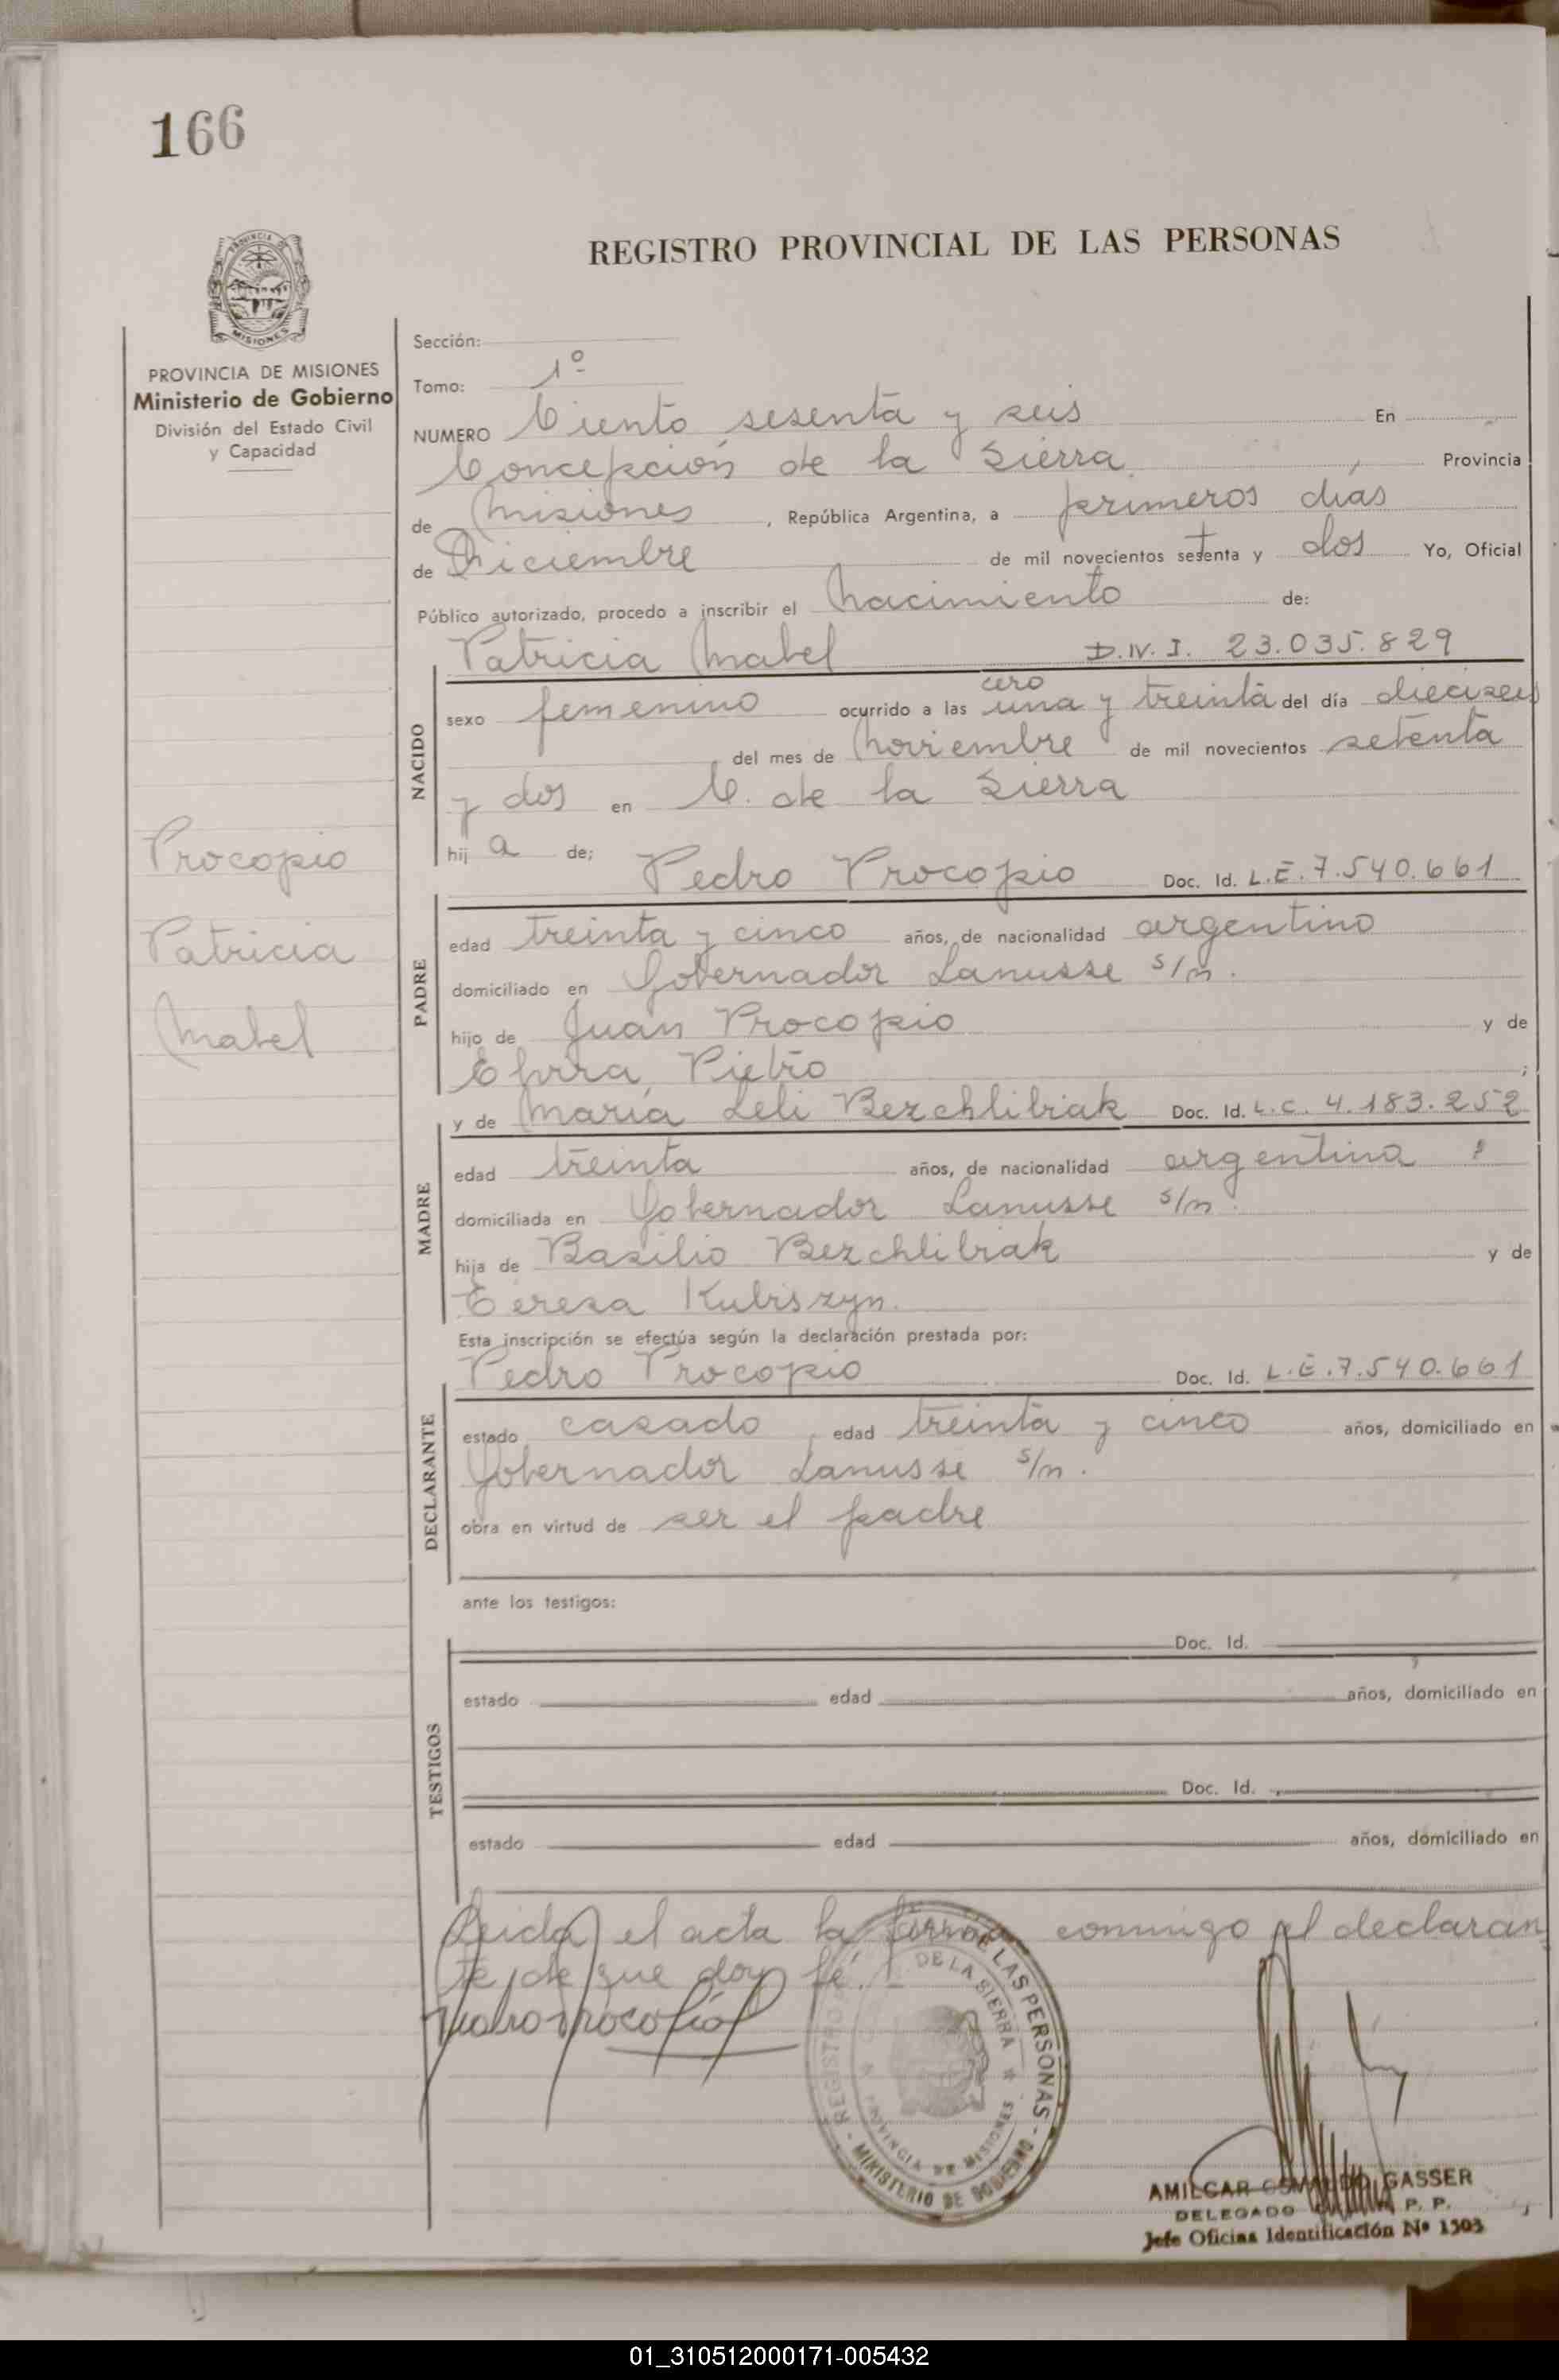 166
REGISTRO PROVINCIAL DE LAS PERSONAS
PROVINCIA DE MISIONES
Ministerio de Gobierno
División del Estado Civil
y Capacidad
Sección:
Tomo: 1º
NUMERO Ciento sesenta y seis En
Concepción de la Sierra, Provincia
de Misiones, República Argentina, a primeros días
de Diciembre de mil novecientos setenta y dos Yo, Oficial
Público autorizado, procedo a inscribir el nacimiento de:
Patricia Mabel D.N.I. 23.035.829
NACIDO
cero
sexo femenino ocurrido a las una y treinta del día dieciseis
del mes de noviembre de mil novecientos setenta
y dos en C. de la Sierra
hij a de; Pedro Procopio Doc. Id. L.E. 7.540.661
Procopio
Patricia
Mabel
PADRE
edad treinta y cinco años, de nacionalidad argentino
domiciliado en Gobernador Lanusse s/n.
hijo de Juan Procopio y de
Elvira Pietro;
y de María Leli Bezchlibiak Doc. Id. L.C. 4.183.252
MADRE
edad treinta años, de nacionalidad argentina
domiciliada en Gobernador Lanusse s/n.
hija de Basilio Bezchlibiak y de
Teresa Kubiszyn.
Esta inscripción se efectúa según la declaración prestada por:
Pedro Procopio Doc. Id. L.E. 7.540.661
DECLARANTE
estado casado, edad treinta y cinco años, domiciliado en
Gobernador Lanusse s/n.
obra en virtud de ser el padre
ante los testigos:
TESTIGOS
Doc. Id.
estado edad años, domiciliado en
Doc. Id.
estado edad años, domiciliado en
Leida el acta la firma conmigo el declaran
te, de que doy fé.
Pedro Procopio
REGISTRO DE LAS PERSONAS - MINISTERIO DE GOBIERNO -
DE LA SIERRA * PROVINCIA DE MISIONES *
AMILCAR OSVALDO GASSER
DELEGADO P. P.
Jefe Oficina Identificación Nº 1503
01_310512000171-005432